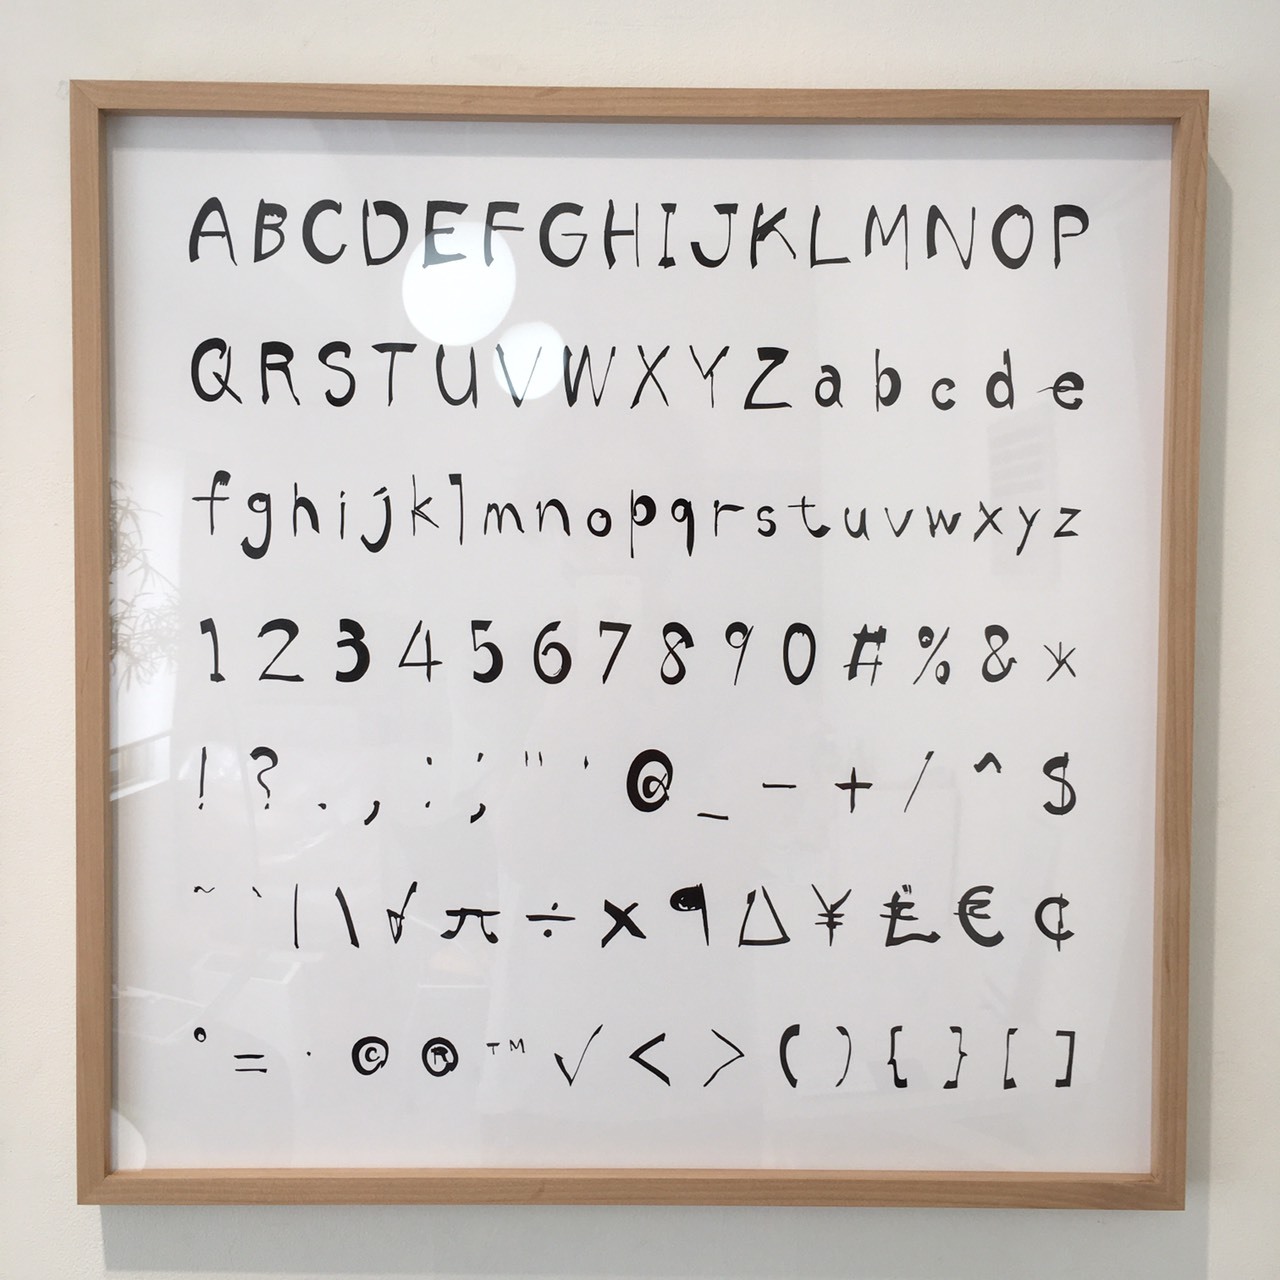 A B C D E F G H I J K L M N O P
Q R S T U V W X Y Z a b c d e
f g h i j k l m n o p q r s t u v w x y z
1 2 3 4 5 6 7 8 9 0 # % & *
! ? . , : ; " ' @ _ - + / ^ $
~ ` | \ √ π ÷ x ¶ ∆ ¥ £ € ¢
° = · © ® ™ √ < > ( ) { } [ ]